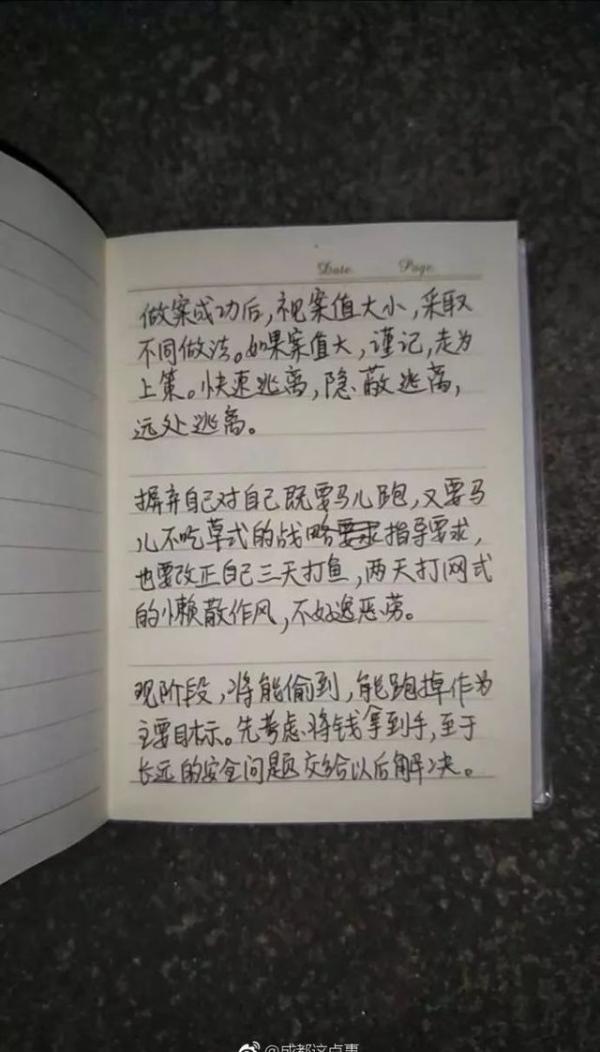 Date Page
做案成功后,视案值大小,采取
不同做法。如果案值大,谨记,走为
上策。快速逃离,隐蔽逃离,
远处逃离。
摒弃自己对自己既要马儿跑,又要马
儿不吃草式的战略要求指导要求,
也要改正自己三天打鱼,两天打网式
的懒散作风,不好逸恶劳。
现阶段,将能偷到,能跑掉作为
主要目标。先考虑将钱拿到手,至于
长远的安全问题交给以后解决。
@成都这点事